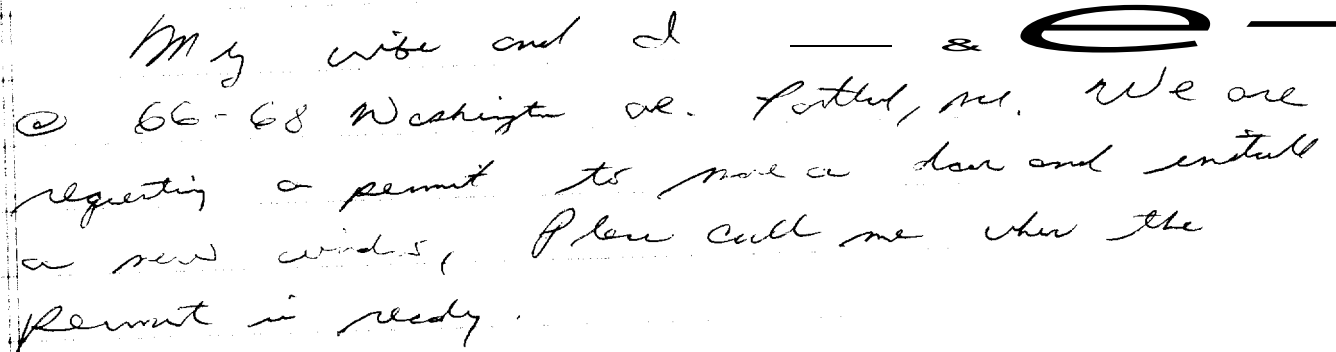 My wife and I & e
@ 66-68 Washington ave. Portland, me. We are
requesting a permit to move a door and install
a new window, Please call me when the
permit is ready.